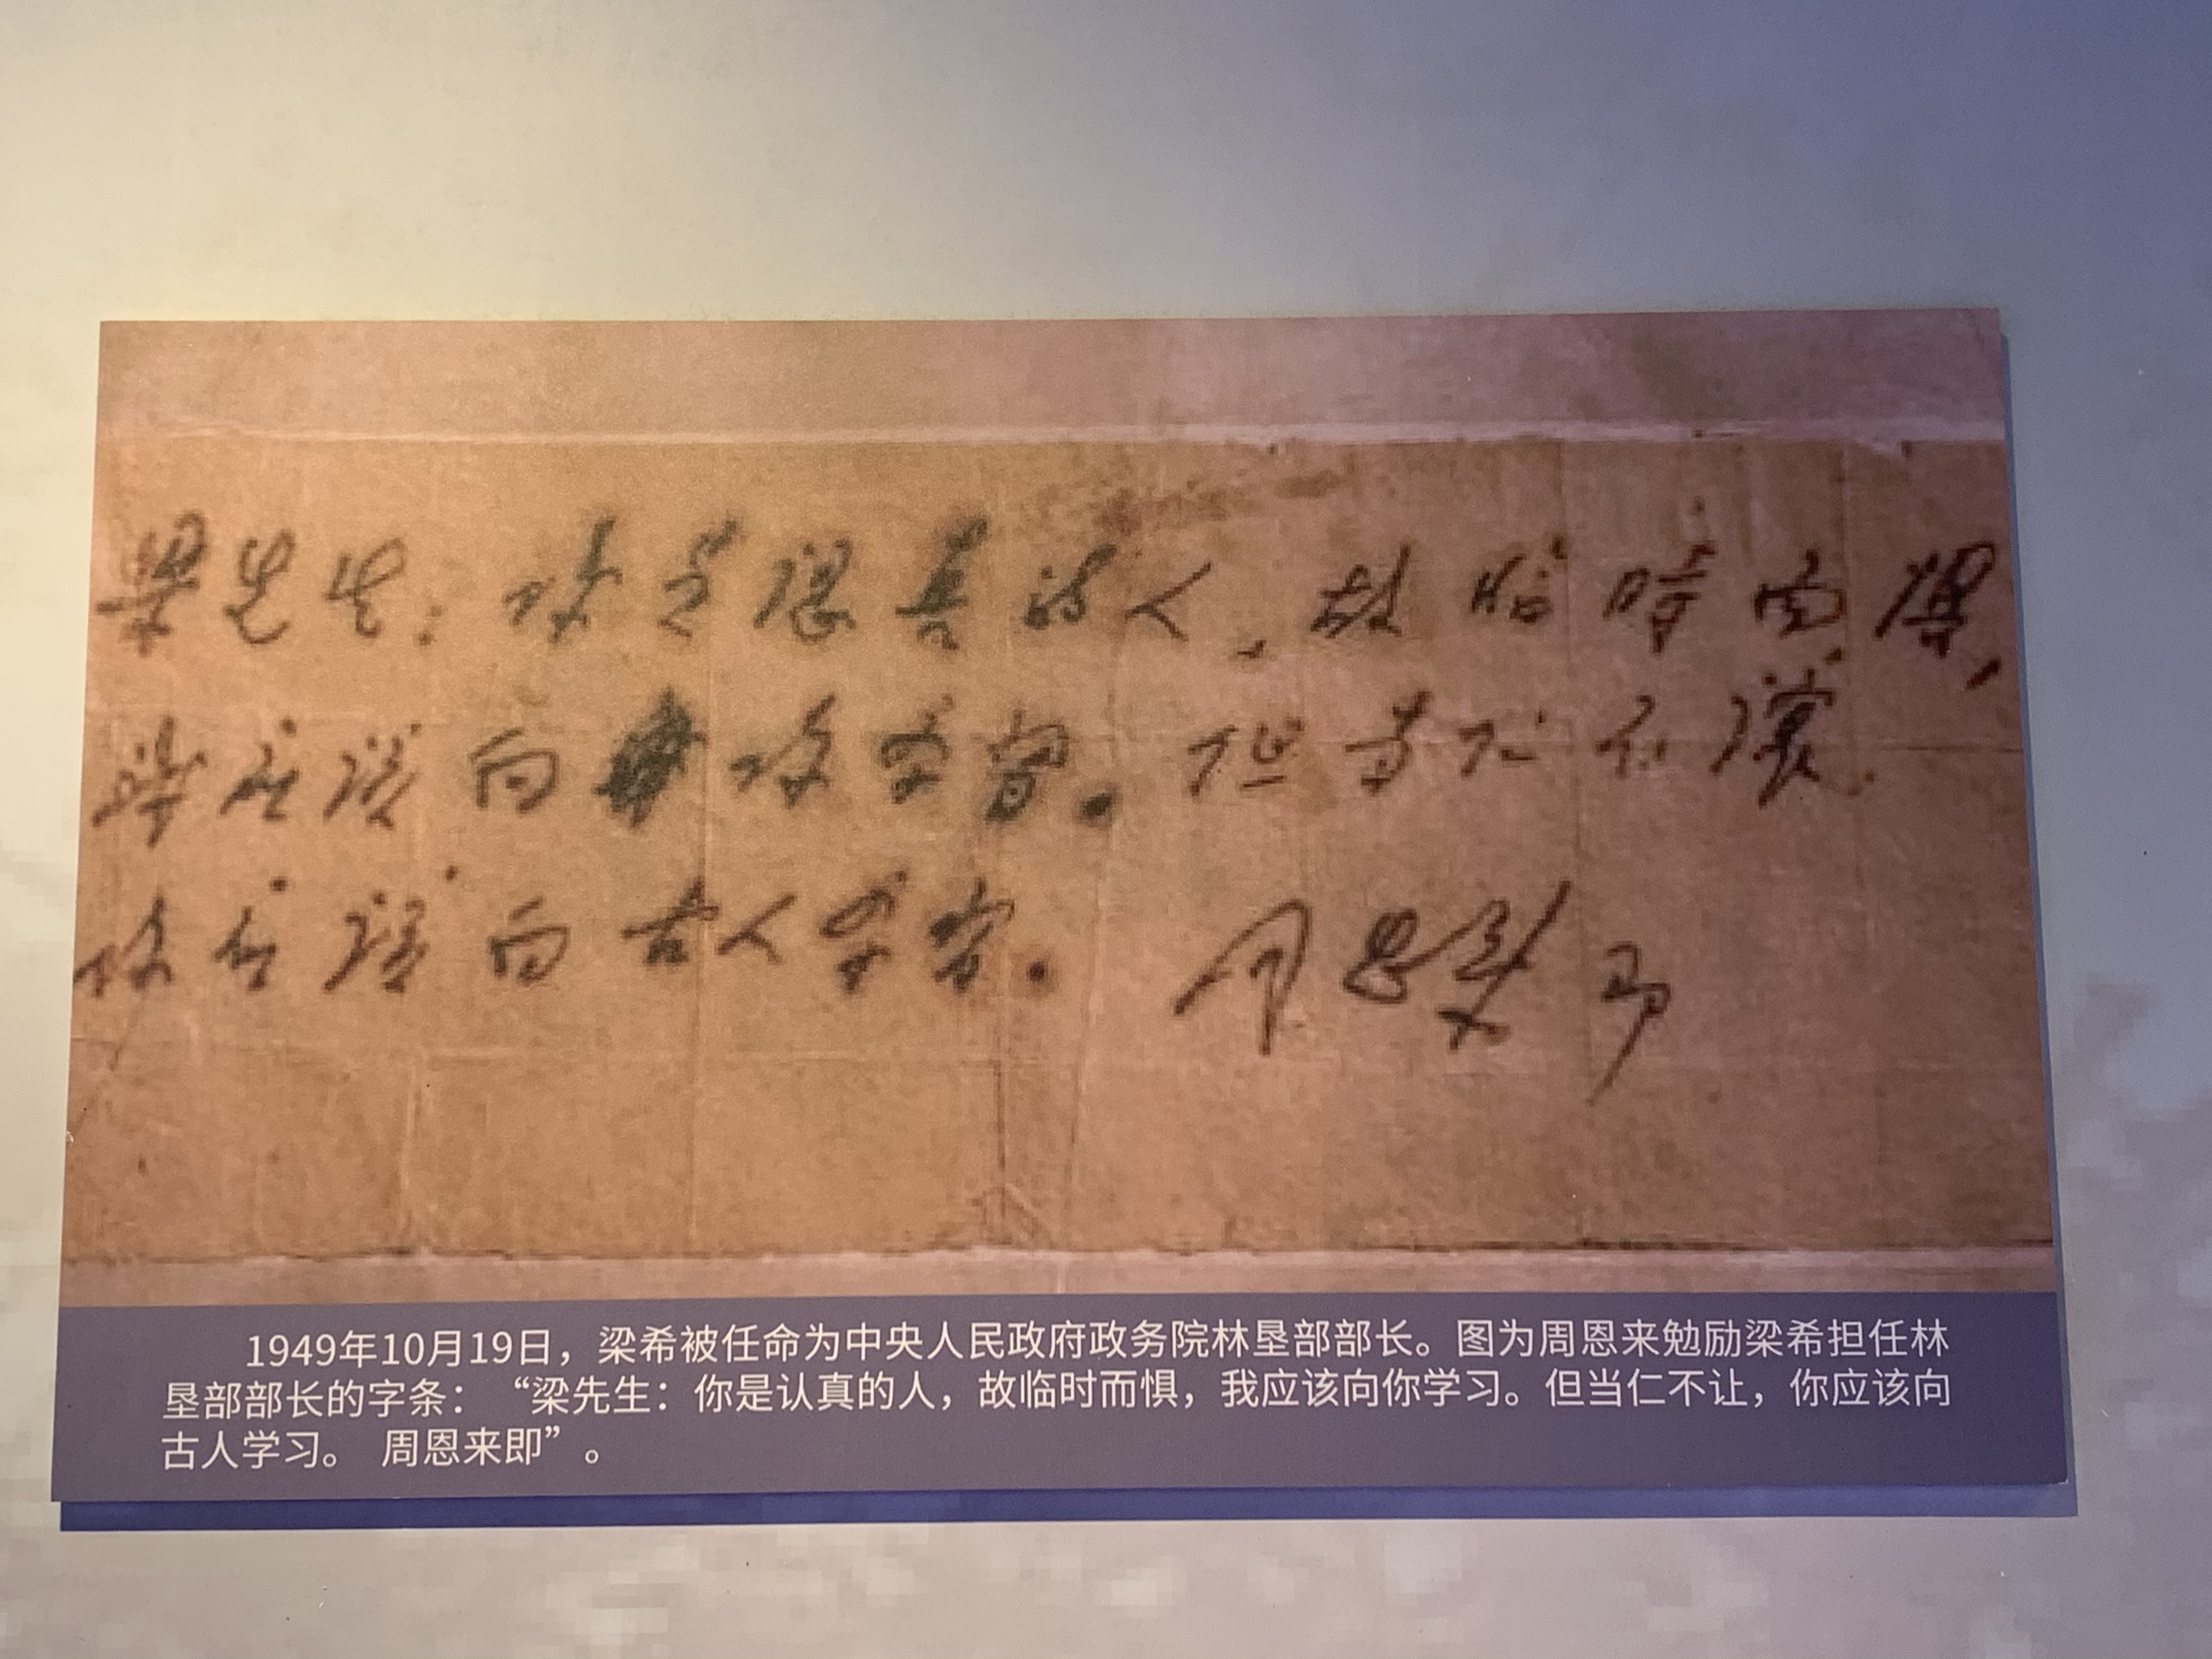 梁先生：你是認真的人，故临時而懼，
我应該向你学習。但当仁不讓，
你应該向古人学習。 周恩来 即
1949年10月19日，梁希被任命为中央人民政府政务院林垦部部长。图为周恩来勉励梁希担任林
垦部部长的字条：“梁先生：你是认真的人，故临时而惧，我应该向你学习。但当仁不让，你应该向
古人学习。 周恩来即”。